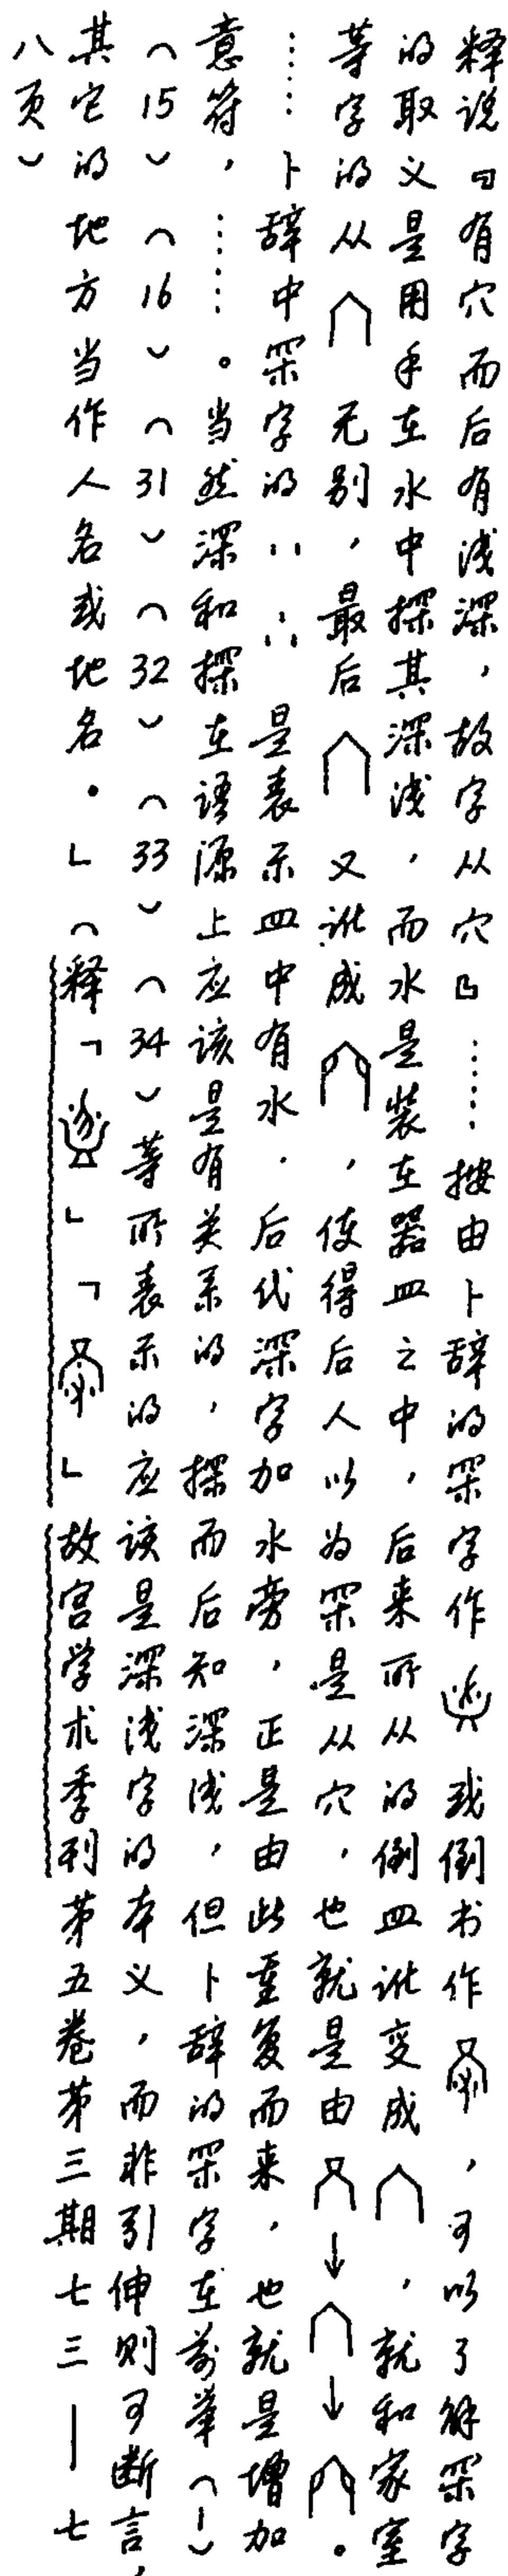 释说『有穴而后有浅深，故字从穴』……按由卜辞的罙字作或倒书作，可以了解罙字
的取义是用手在水中探其深浅，而水是装在器皿之中，后来所从的倒皿讹变成，就和家室
等字的从无别，最后又讹成，使得后人以为罙是从穴，也就是由→→。
……卜辞中罙字的是表示皿中有水．后代深字加水旁，正是由此重复而来，也就是增加
意符，……。当然深和探在语源上应该是有关系的，探而后知深浅，但卜辞的罙字在前举（1）
（15）（16）（31）（32）（33）（34）等所表示的应该是深浅字的本义，而非引伸则可断言，
其它的地方当作人名或地名．」（释「」「」故宫学术季刊第五卷第三期七三—七
八页）